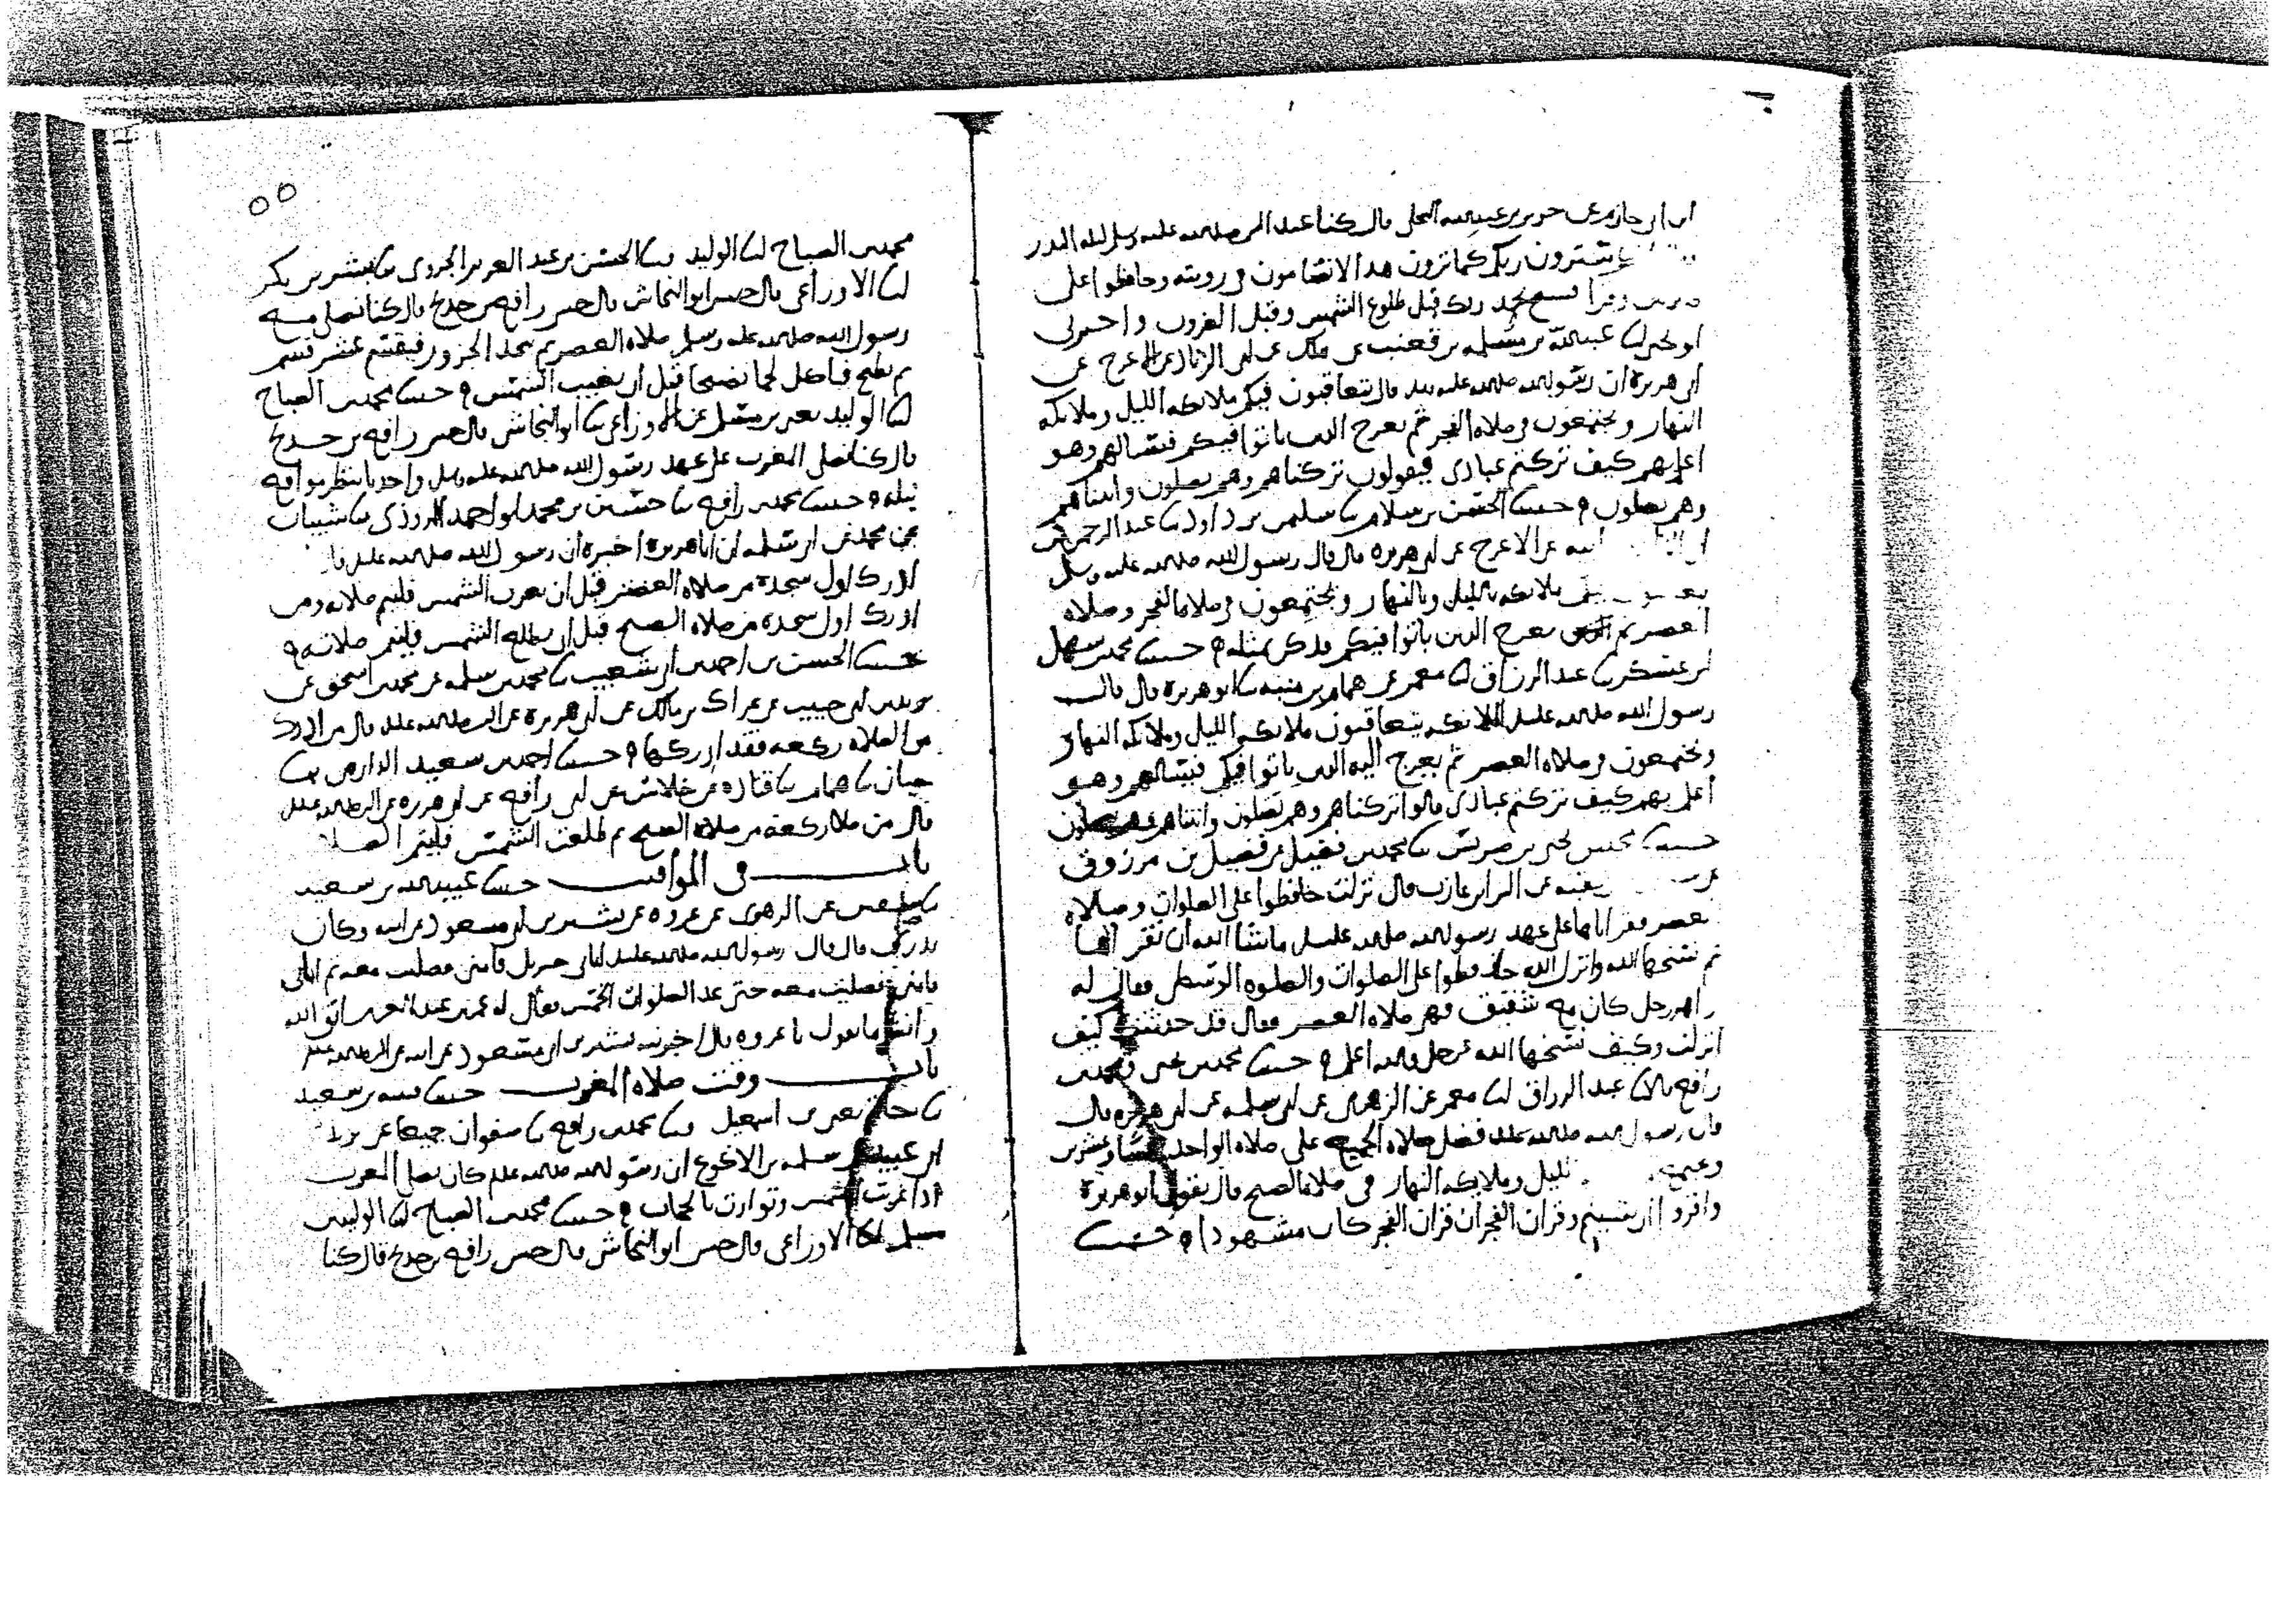 ابن ابي حازم عن جرير بن عبد الله البجلي قال كنا عند النبي صلى الله عليه وسلم ليلة البدر
سترون ربكم كما ترون هذا لا تضامون في رويته وحافظوا على
وقرا فسبح بحمد ربك قبل طلوع الشمس وقبل الغروب واخبرني
عبد الله بن مسلمه بن قعنب عن ملك عن ابي الزناد عن الاعرج عن
ابي هريرة ان رسول الله صلى الله عليه وسلم قال يتعاقبون فيكم ملائكه الليل وملائكه
النهار ويجتمعون في صلاه الفجر ثم يعرج الذين باتوا فيكم فيسالهم وهو
اعلم بهم كيف تركتم عبادي فيقولون تركناهم وهم يصلون واتيناهم
وهم يصلون حدثنا الحسن بن سلام ثنا سليمن بن داود ثنا عبد الرحمن بن
ابي الزناد عن ابيه عن الاعرج عن ابي هريره قال قال رسول الله صلى الله عليه وسلم
ملائكه بالليل وبالنهار ويجتمعون في صلاه الفجر وصلاه
العصر ثم يعرج الذين باتوا فيكم وذكر مثله حدثنا محمد بن سهل
بن عسكر ثنا عبد الرزاق انا معمر عن همام بن منبه ثنا ابو هريرة قال قال
رسول الله صلى الله عليه وسلم الملائكه يتعاقبون ملائكه الليل وملائكه النهار
ويجتمعون في صلاه العصر ثم يعرج اليه الذين باتوا فيكم فيسالهم وهو
اعلم بهم كيف تركتم عبادي قالوا تركناهم وهم يصلون واتيناهم وهم يصلون
حدثنا محمد بن فضيل بن مرزوق
عن عقبه عن البرا بن عازب قال نزلت حافظوا على الصلوات وصلاه
العصر فقراناها على عهد رسول الله صلى الله عليه وسلم ما شا الله ان نقراها
ثم نسخها الله وانزل الله حافظوا على الصلوات والصلوه الوسطى فقال له
زاهر رجل كان مع شقيق فهي صلاه العصر فقال قد حدثتك كيف
انزلت وكيف نسخها الله عز وجل والله اعلم حدثنا محمد بن يحيى ومحمد بن
رافع قالا ثنا عبد الرزاق انا معمر عن الزهري عن ابي سلمه عن ابي هريره قال
قال رسول الله صلى الله عليه وسلم فضل صلاه الجميع على صلاه الواحد خمسا وعشرين
الليل وملايكه النهار في صلاه الصبح قال يقول ابو هريرة
واقروا ان شيتم وقران الفجر ان قران الفجر كان مشهودا حدثنا
٥٥
محمد بن الصباح انا الوليد وثنا الحسن بن عبد العزيز الجروي ثنا بشر بن بكر
انا الاوزاعي قال حدثني ابو النجاشي قال حدثني رافع بن خديج قال كنا نصلي مع
رسول الله صلى الله عليه وسلم صلاه العصر ثم ننحر الجزور فيقسم عشر قسم
ثم نطبخ فناكل لحما نضيجا قبل ان يغيب الشمس حدثنا محمد بن الصباح
انا الوليد يعني بن مسلم عن الاوزاعي ثنا ابو النجاشي قال حدثني رافع بن خديج
قال كنا نصلي المغرب على عهد رسول الله صلى الله عليه وسلم واحدنا ينظر مواقع
نبله حدثنا محمد بن رافع ثنا حسين بن محمد ابو احمد المروذي ثنا شيبان
عن يحيى ابي سلمه ان ابا هريرة اخبره ان رسول الله صلى الله عليه وسلم قال
ادرك اول سجدة من صلاه العصر قبل ان تغرب الشمس فليتم صلاته ومن
ادرك اول سجدة من صلاه الصبح قبل ان يطلع الشمس فليتم صلاته
حدثنا الحسن بن احمد بن ابي شعيب ثنا محمد بن سلمه عن محمد بن اسحق عن
يزيد بن ابي حبيب عن عراك بن مالك عن ابي هريرة عن النبي صلى الله عليه وسلم قال من ادرك
من الصلاه ركعه فقد ادركها حدثنا احمد بن سعيد الدارمي ثنا
حبان ثنا همام ثنا قتاده عن خلاس عن ابي رافع عن ابي هريره عن النبي صلى الله عليه وسلم
قال من صلا ركعه من صلاه الصبح ثم طلعت الشمس فليتم الصلاه
باب في المواقيت حدثنا عبيد الله بن سعيد
ثنا سفين عن الزهري عن عروه عن بشير بن ابي مسعود عن ابيه وكان
بدري قال قال رسول الله صلى الله عليه وسلم اتاني جبريل فامني فصليت معه ثم اتاني
فامني فصليت معه حتى عد الصلوات الخمس فقال له عمر بن عبد العزيز اتق الله
وانظر ما تقول يا عروه قال اخبرنيه بشير بن ابي مسعود عن ابيه عن النبي صلى الله عليه وسلم
باب وقت صلاه المغرب حدثنا قتيبه بن سعيد
ثنا حاتم يعني بن اسمعيل وثنا محمد بن رافع ثنا صفوان جميعا عن يزيد
ابن ابي عبيد عن سلمه بن الاكوع ان رسول الله صلى الله عليه وسلم كان يصلي المغرب
اذا غربت الشمس وتوارت بالحجاب حدثنا محمد بن الصباح انا الوليد بن
مسلم انا الاوزاعي قال حدثني ابو النجاشي قال حدثني رافع بن خديج قال كنا